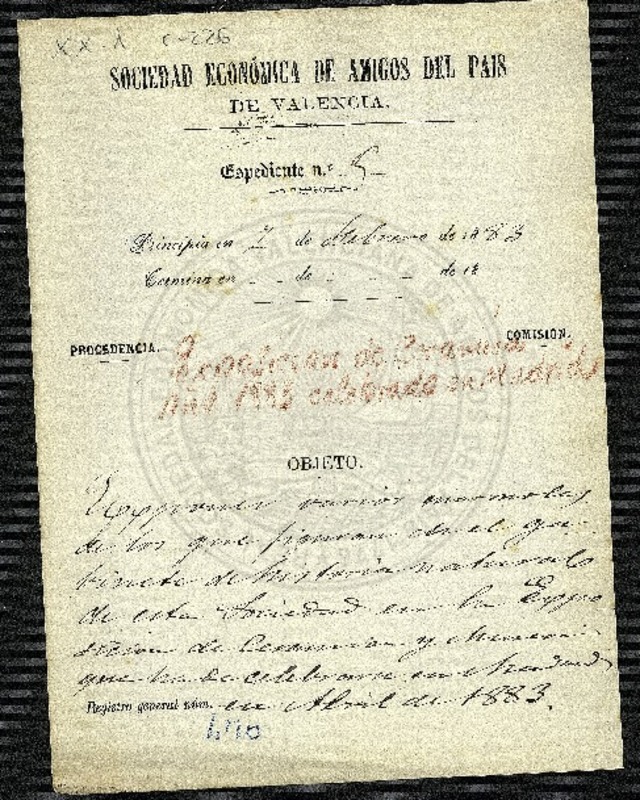 XX. 1 C-226
SOCIEDAD ECONÓMICA DE AMIGOS DEL PAIS
DE VALENCIA.
Espediente n.º 5
Principia en 7 de Febrero de 1883
Termina en de de 18
PROCEDENCIA. COMISION.
Exposicion de
1883 celebrada en Madrid
OBJETO.
Exponer varios marmoles
de los que figuran en el ga-
binete de historia natural
de esta Sociedad en la Expo
sicion de Ceramica y
que ha de celebrarse en Madrid
Registro general núm. en Abril de 1883.